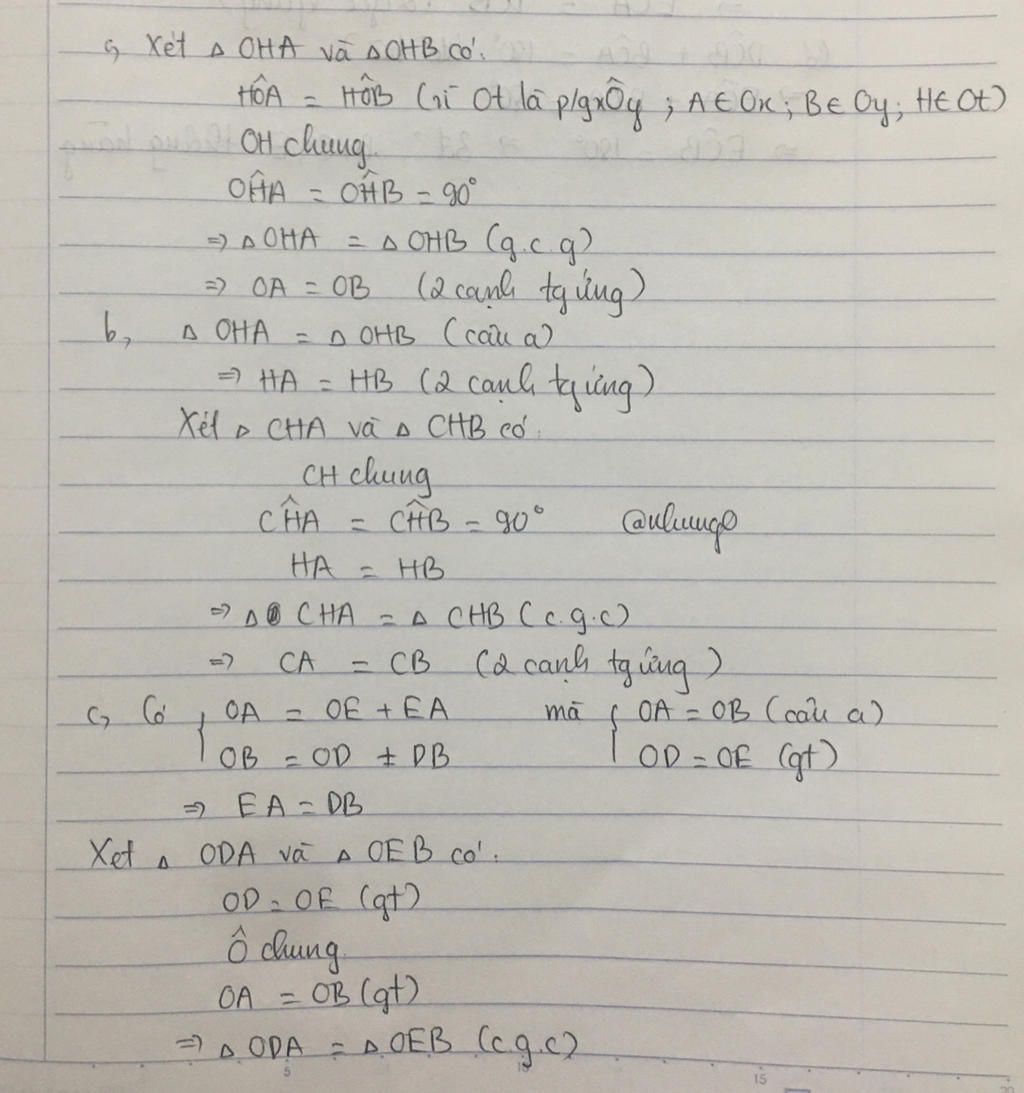 a, Xét △ OHA và △OHB có:
HÔA = HÔB (vì Ot là p/g xÔy ; A ∈ Ox ; B ∈ Oy ; H ∈ Ot)
OH chung
OĤA = OĤB = 90°
⇒ △ OHA = △ OHB (g.c.g)
⇒ OA = OB (2 cạnh tg ứng)
b, △ OHA = △ OHB (câu a)
⇒ HA = HB (2 cạnh tg ứng)
Xét △ CHA và △ CHB có:
CH chung
CĤA = CĤB = 90° @nhung0
HA = HB
⇒ △ CHA = △ CHB (c.g.c)
⇒ CA = CB (2 cạnh tg ứng)
c, Có { OA = OE + EA mà { OA = OB (câu a)
OB = OD + DB OD = OE (gt)
⇒ EA = DB
Xét △ ODA và △ OEB có:
OD = OE (gt)
Ô chung
OA = OB (gt)
⇒ △ ODA = △ OEB (c.g.c)
5 15 20